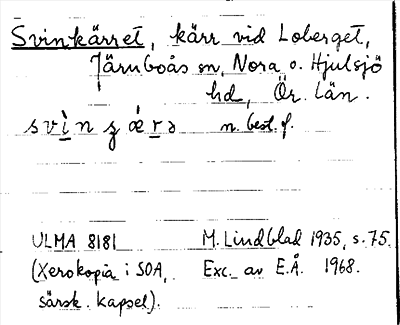 Svinkärret, kärr vid Loberget,
Järnboås sn, Nora o. Hjulsjö
hd, Ör. län.
n. best. f.
ULMA 8181 M. Lindblad 1935, s. 75.
(Xerokopia i SOA, Exc. av E.Å. 1968.
särsk. kapsel).